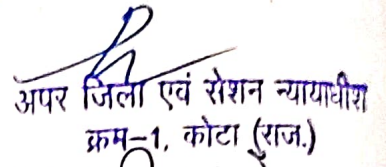 अपर जिला एवं सेशन न्यायाधीश
क्रम-1, कोटा (राज.)